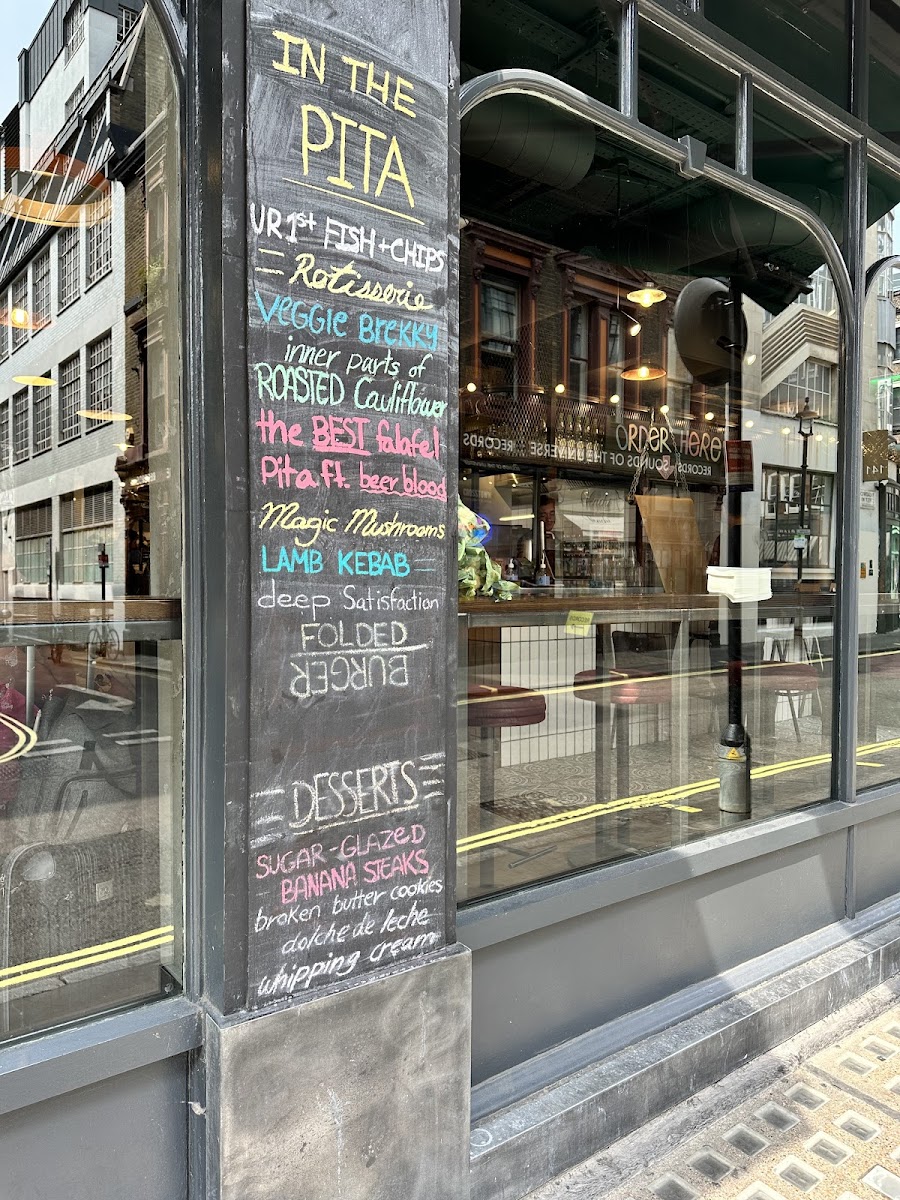 IN THE
PITA
UR 1st FISH + CHIPS
Rotisserie
Veggie Brekky
inner parts of
ROASTED Cauliflower
the BEST falafel
Pita ft. beer blood
Magic Mushrooms
LAMB KEBAB
deep Satisfaction
FOLDED
BURGER
DESSERTS
SUGAR-GLAZED
BANANA STEAKS
broken butter cookies
dolche de leche
whipping cream
ORDER HERE
RECORDS SOUNDS OF THE UNIVERSE ... RECORDS
141